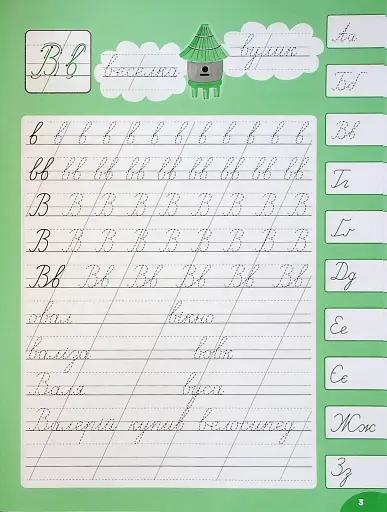 Вв веселка вулик
в в в в в в в в в в в в
вв вв вв вв вв вв вв вв вв
В В В В В В В В
В В В В В В В В
Вв Вв Вв Вв Вв Вв
овал вікно
валіза вовк
Валя вуса
Валерій купив велосипед
Аа
Бб
Вв
Гг
Ґґ
Дд
Ее
Єє
Жж
Зз
3